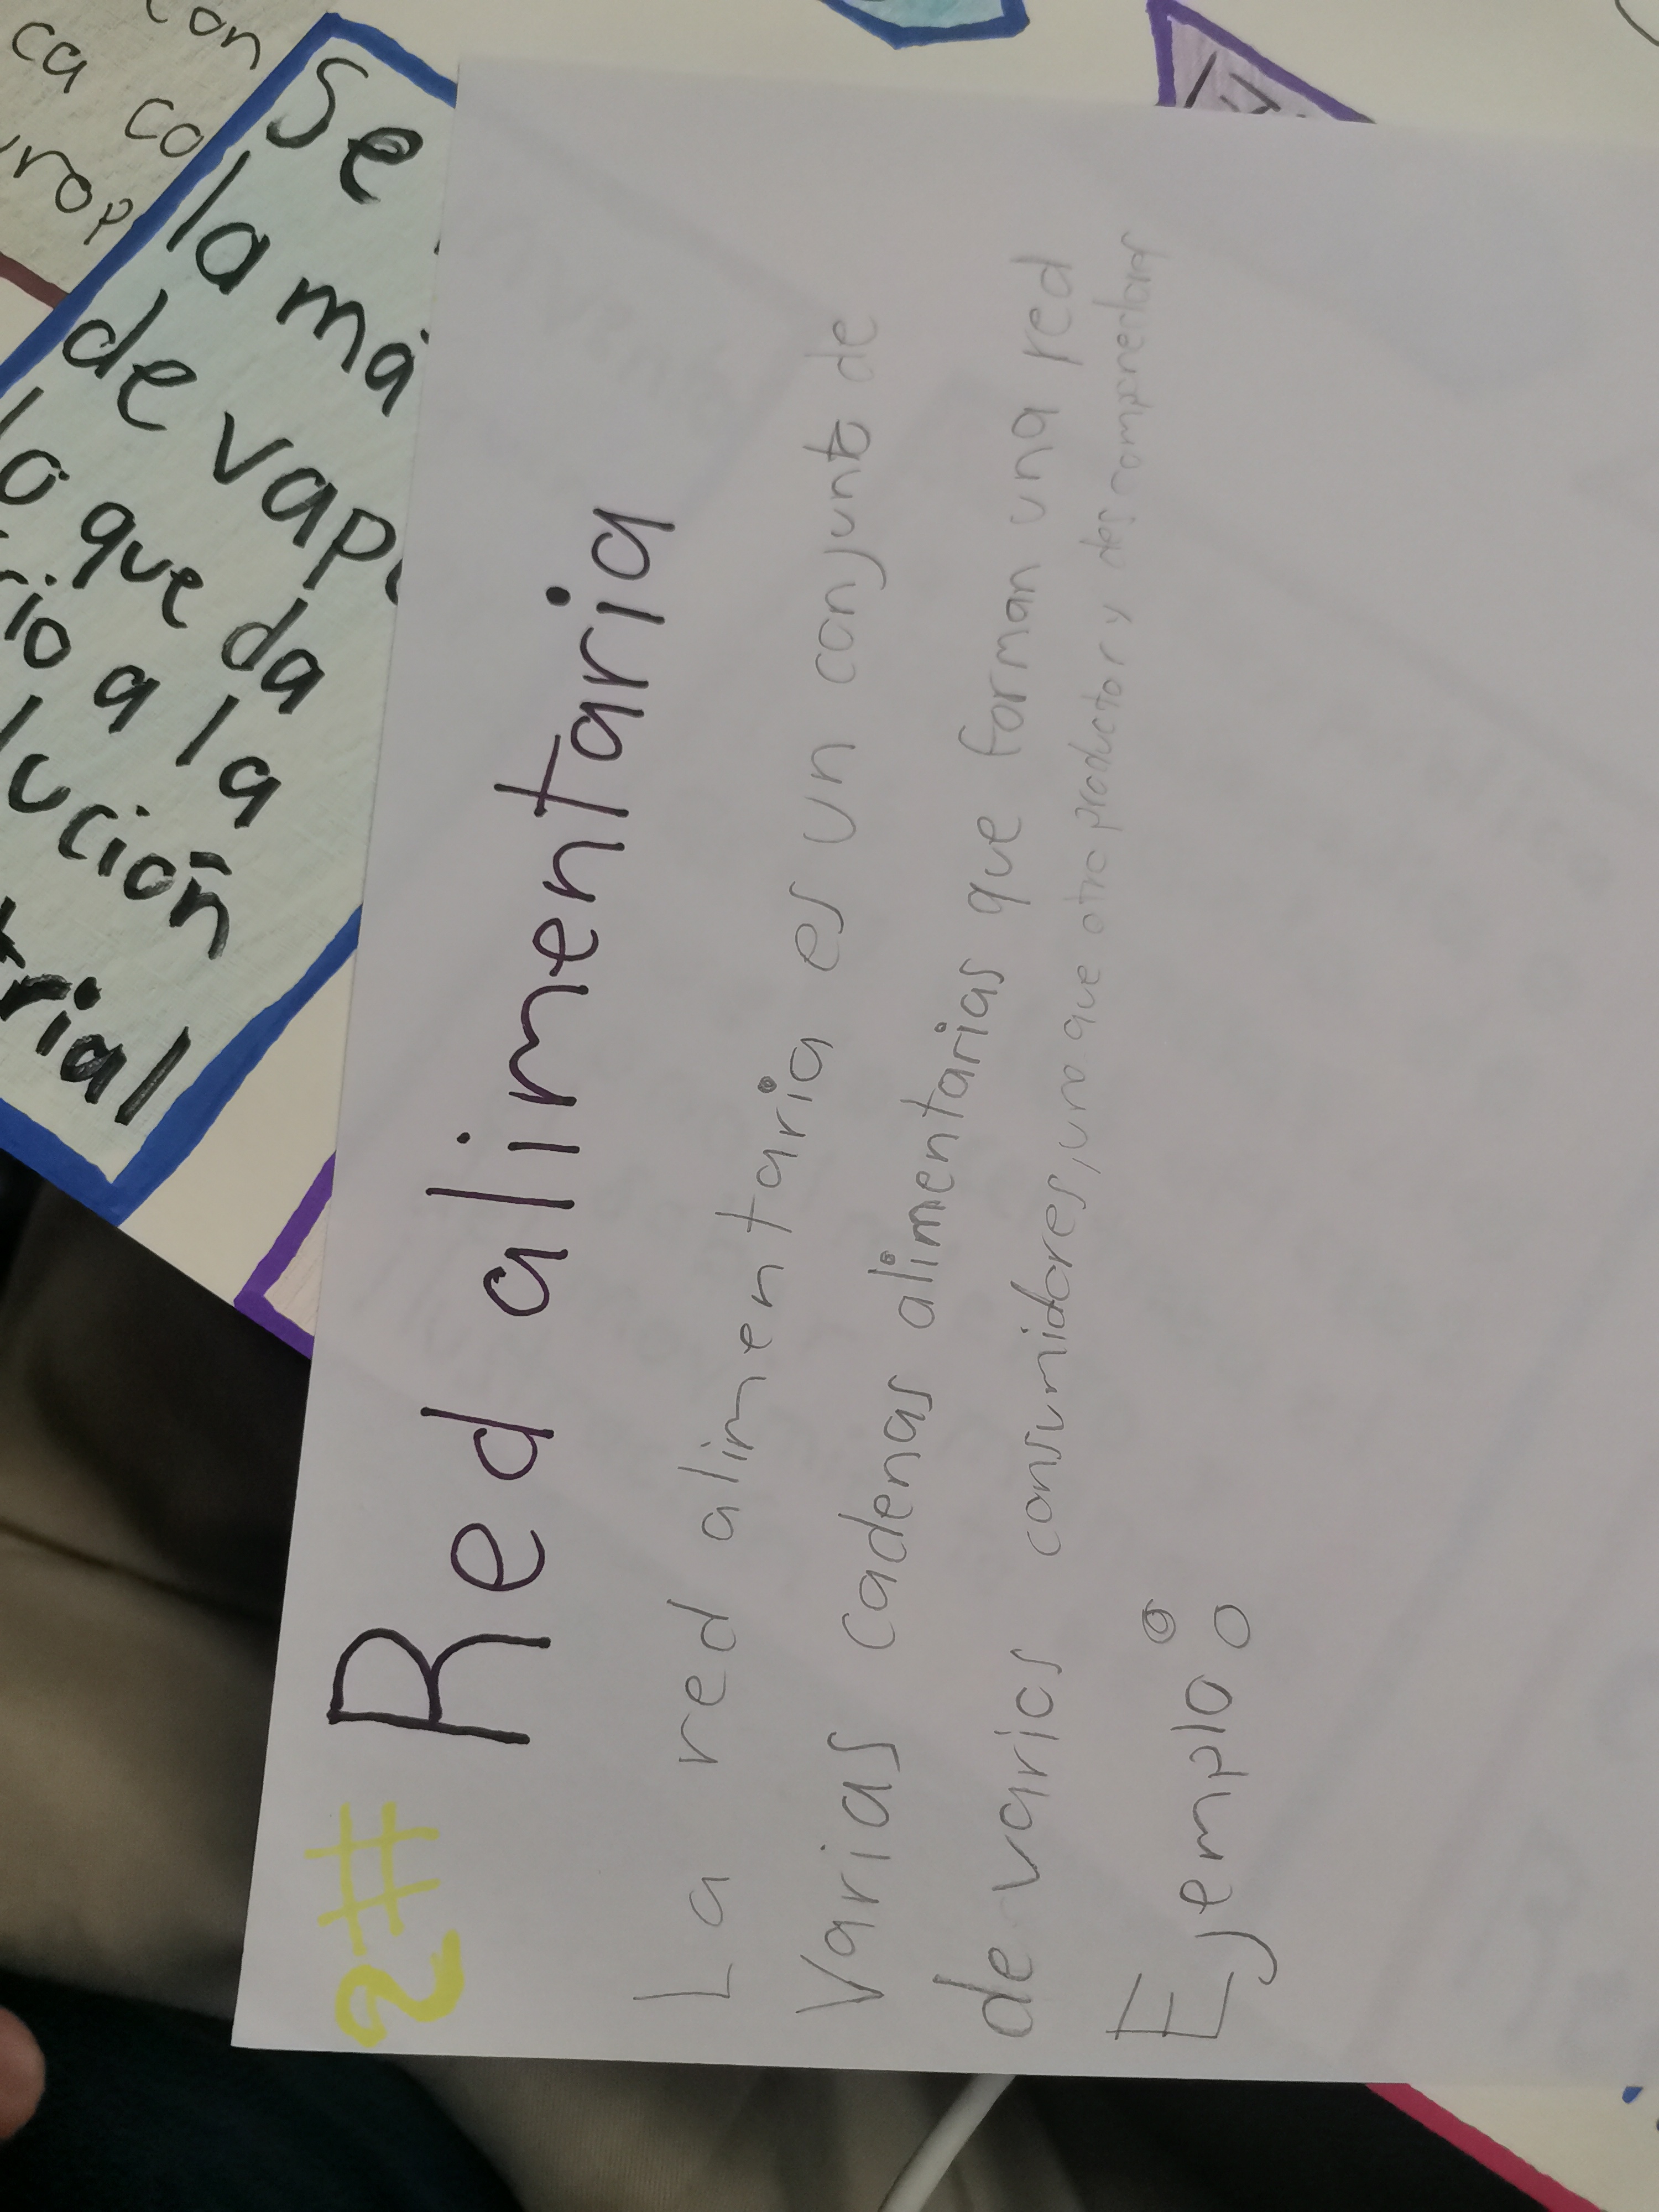 2# Red alimentaria
La red alimentaria es un conjunto de
Varias cadenas alimentarias que forman una red
de varios consumidores, uno que otro productor y descomponedor
Ejemplo:
Se
la má
de vap
lo que da
rio a la
lución
trial
con
ca co
rop